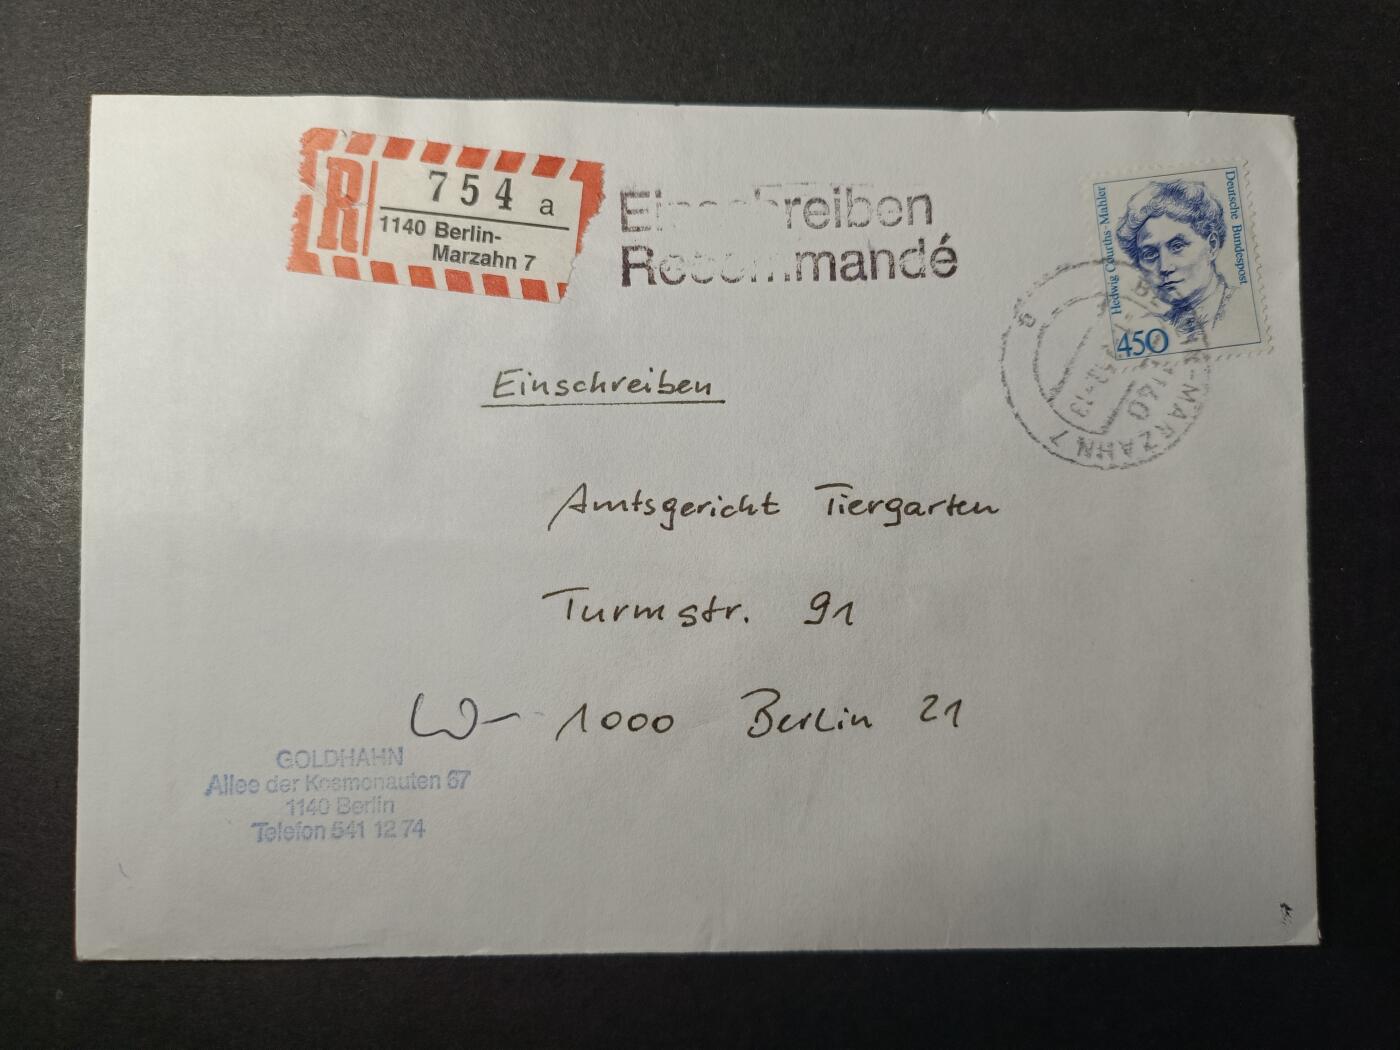 R
754 a
1140 Berlin-
Marzahn 7
Einschreiben
Recommandé
Hedwig Courths-Mahler
Deutsche Bundespost
450
1140
-MARZAHN 7
Einschreiben
Amtsgericht Tiergarten
Turmstr. 91
1000 Berlin 21
GOLDHAHN
Allee der Kosmonauten 67
1140 Berlin
Telefon 541 12 74